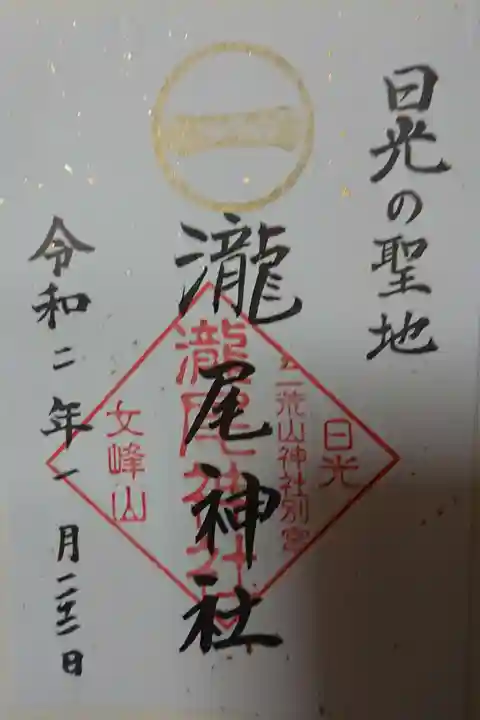 一
日光の聖地
瀧尾神社
令和二年一月二十二日
日光
二荒山神社別宮
瀧尾神社
女峰山